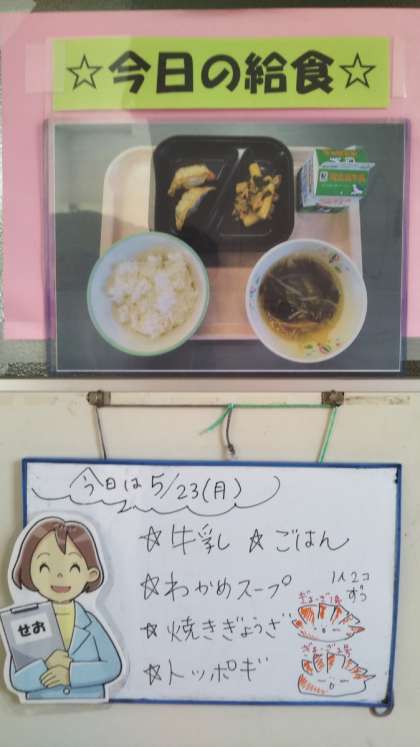 ☆今日の給食☆
今日は5/23(月)
☆牛乳 ☆ごはん
☆わかめスープ
☆焼きぎょうざ
☆トッポギ
1人2コ
ずつ
ぎょーざ1号
ぎょーざ2号
せお